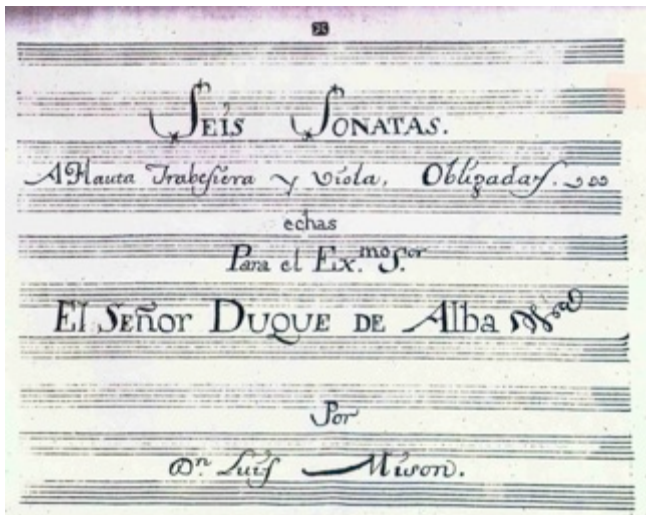 SEIS SONATAS.
A Flauta Trabesiera y Viola, Obligadas.
echas
Para el Ex.mo S.or
El Señor DUQUE DE Alba
Por
Dn. Luis Mison.